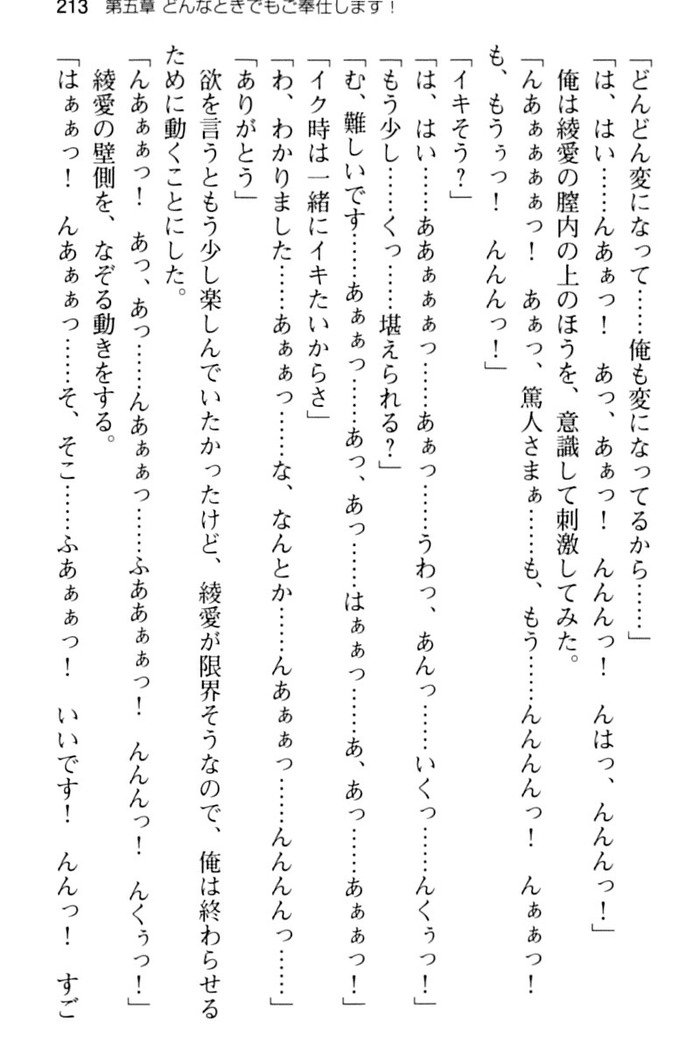 213 第五章 どんなときでもご奉仕します!
「どんどん変になって……俺も変になってるから……」
「は、はい……んあぁっ! あっ、あぁっ! んんんっ! んはっ、んんんっ!」
俺は綾愛の膣内の上のほうを、意識して刺激してみた。
「んあぁぁぁぁっ! あぁっ、篤人さまぁ……も、もう……んんんんっ! んぁぁっ!
も、もうぅっ! んんんっ!」
「イキそう?」
「は、はい……ああぁぁぁっ……あぁっ……うわっ、あんっ……いくっ……んくぅっ!」
「もう少し……くっ……堪えられる?」
「む、難しいです……あぁぁっ……あっ、あっ……はぁぁっ……あ、あっ……あぁぁっ!」
「イク時は一緒にイキたいからさ」
「わ、わかりました……あぁぁっ……な、なんとか……んあぁぁっ……んんんんっ……」
「ありがとう」
欲を言うともう少し楽しんでいたかったけど、綾愛が限界そうなので、俺は終わらせる
ために動くことにした。
「んあぁぁっ! あっ、あっ……んあぁぁっ……ふああぁぁっ! んんんっ! んくぅっ!」
綾愛の壁側を、なぞる動きをする。
「はぁぁっ! んあぁぁっ……そ、そこ……ふあぁぁっ! いいです! んんっ! すご